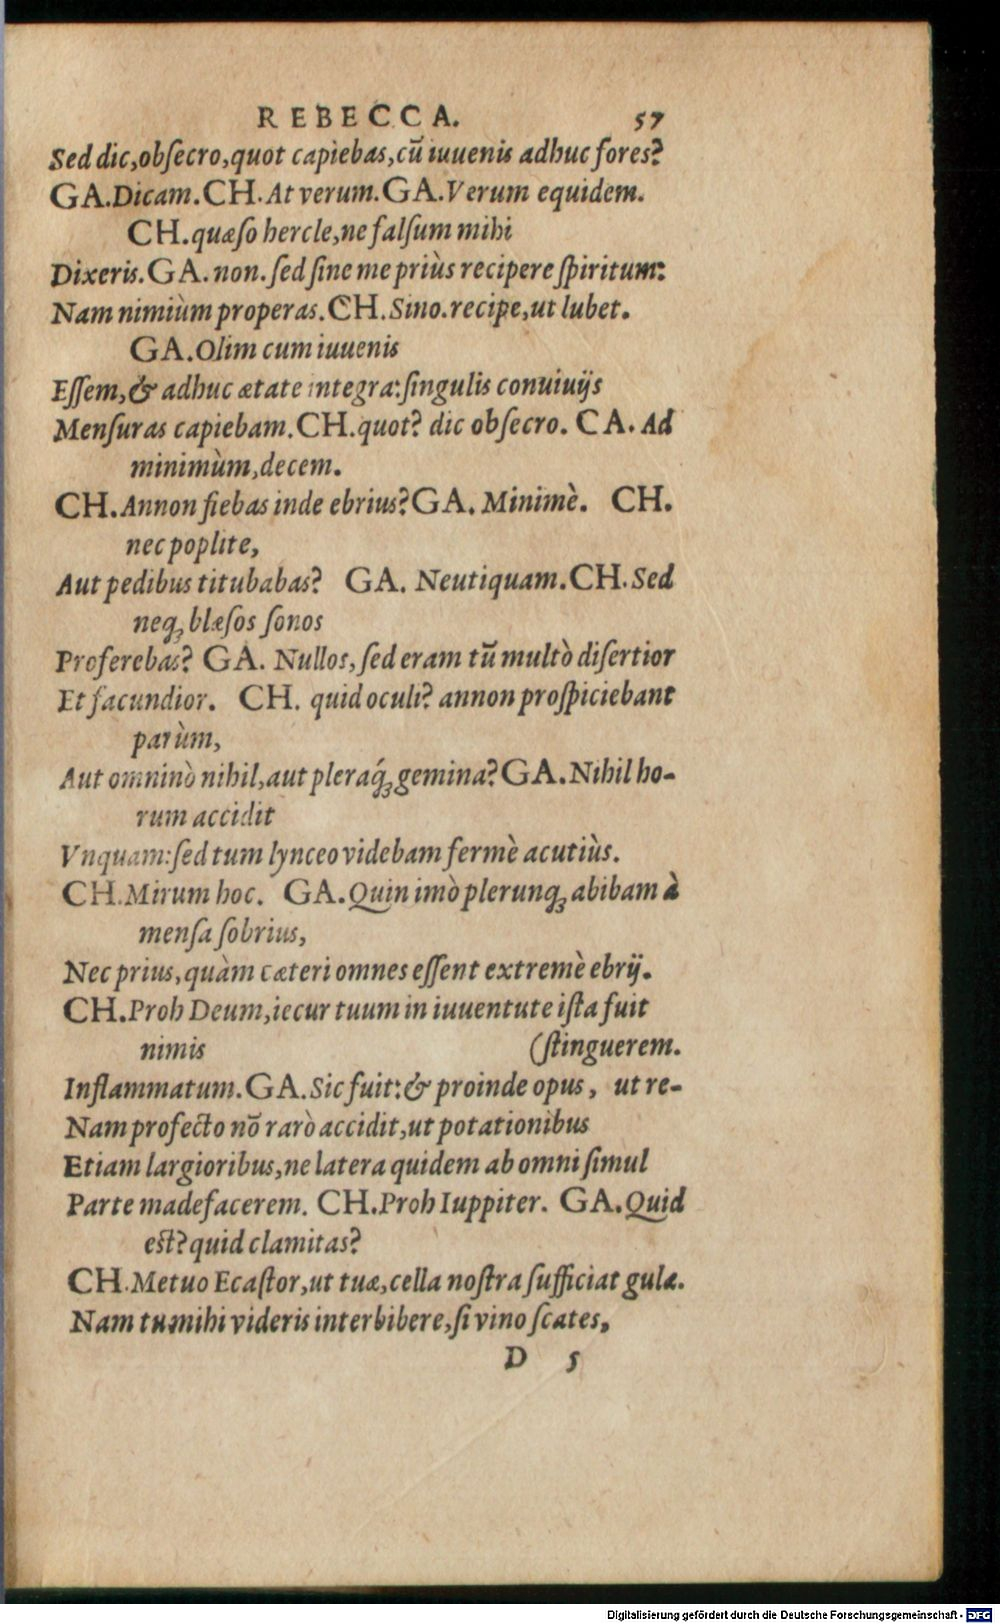 REBECCA. 57
Sed dic, obſecro, quot capiebas, cũ iuuenis adhuc fores?
GA. Dicam. CH. At verum. GA. Verum equidem.
CH. quæſo hercle, ne falſum mihi
Dixeris. GA. non. ſed ſine me priùs recipere ſpiritum:
Nam nimiùm properas. CH. Sino. recipe, ut lubet.
GA. Olim cum iuuenis
Eſſem, & adhuc ætate integra: ſingulis conuiuijs
Menſuras capiebam. CH. quot? dic obſecro. CA. Ad
minimùm, decem.
CH. Annon fiebas inde ebrius? GA. Minimè. CH.
nec poplite,
Aut pedibus titubabas? GA. Neutiquam. CH. Sed
neqꝫ blæſos ſonos
Proferebas? GA. Nullos, ſed eram tũ multò diſertior
Et facundior. CH. quid oculi? annon proſpiciebant
parùm,
Aut omninò nihil, aut pleraq́ꝫ gemina? GA. Nihil ho-
rum accidit
Vnquam: ſed tum lynceo videbam fermè acutiùs.
CH. Mirum hoc. GA. Quin imò plerunqꝫ abibam à
menſa ſobrius,
Nec prius, quàm cæteri omnes eſſent extremè ebrij.
CH. Proh Deum, iecur tuum in iuuentute iſta fuit
nimis (ſtinguerem.
Inflammatum. GA. Sic fuit: & proinde opus, ut re-
Nam profecto nõ rarò accidit, ut potationibus
Etiam largioribus, ne latera quidem ab omni ſimul
Parte madefacerem. CH. Proh Iuppiter. GA. Quid
eſt? quid clamitas?
CH. Metuo Ecaſtor, ut tuæ, cella noſtra ſufficiat gulæ.
Nam tu mihi videris interbibere, ſi vino ſcates,
D 5
Digitalisierung gefördert durch die Deutsche Forschungsgemeinschaft - DFG